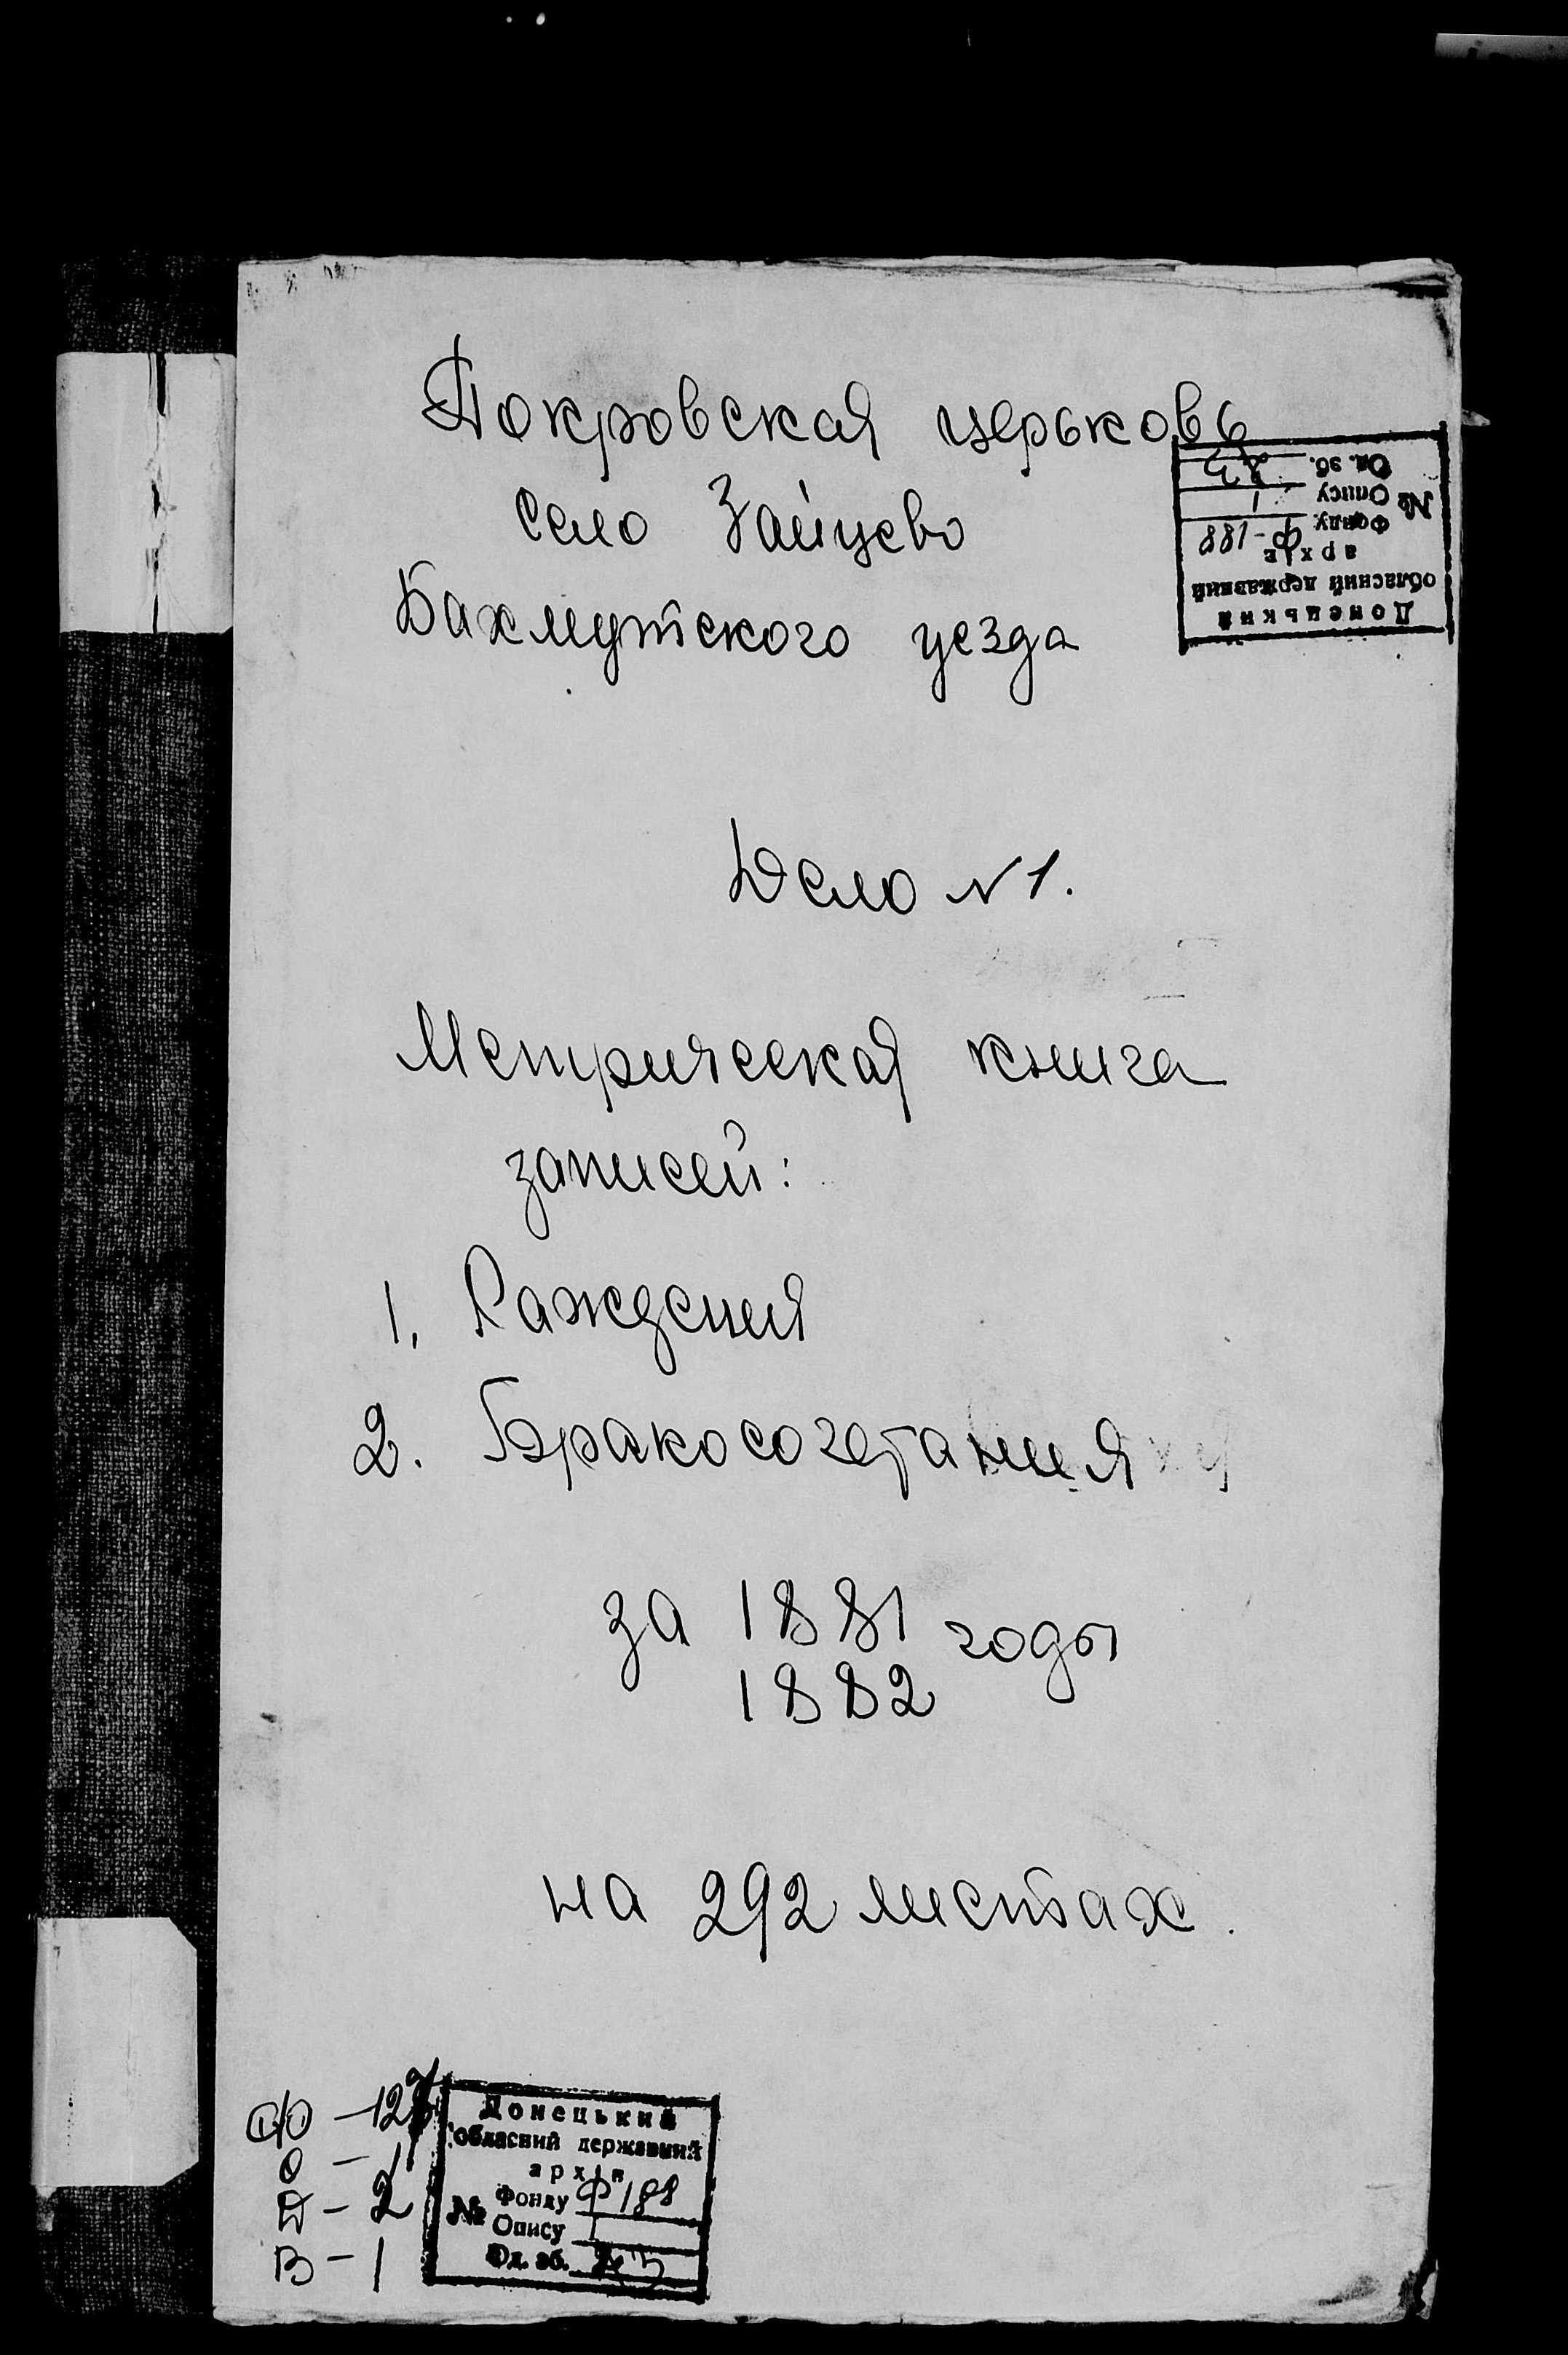 Покровская церьковь
село Зайцево
Бахмутского уезда
Донецький
обласний державний
архів
№ Фонду Ф-188
Опису 1
Од. зб.
Дело N 1.
Метрическая книга
записей:
1. Раждения
2. Бракосочетания
за 1881 годы
1882
на 292 листах.
Донецький
обласний державний
архів
№ Фонду Ф 188
Опису 1
Од. зб.
О – 1
Д – 2
В – 1